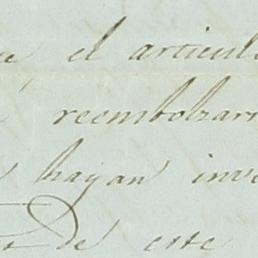 el articul
reembolzar
hayan inv
de este